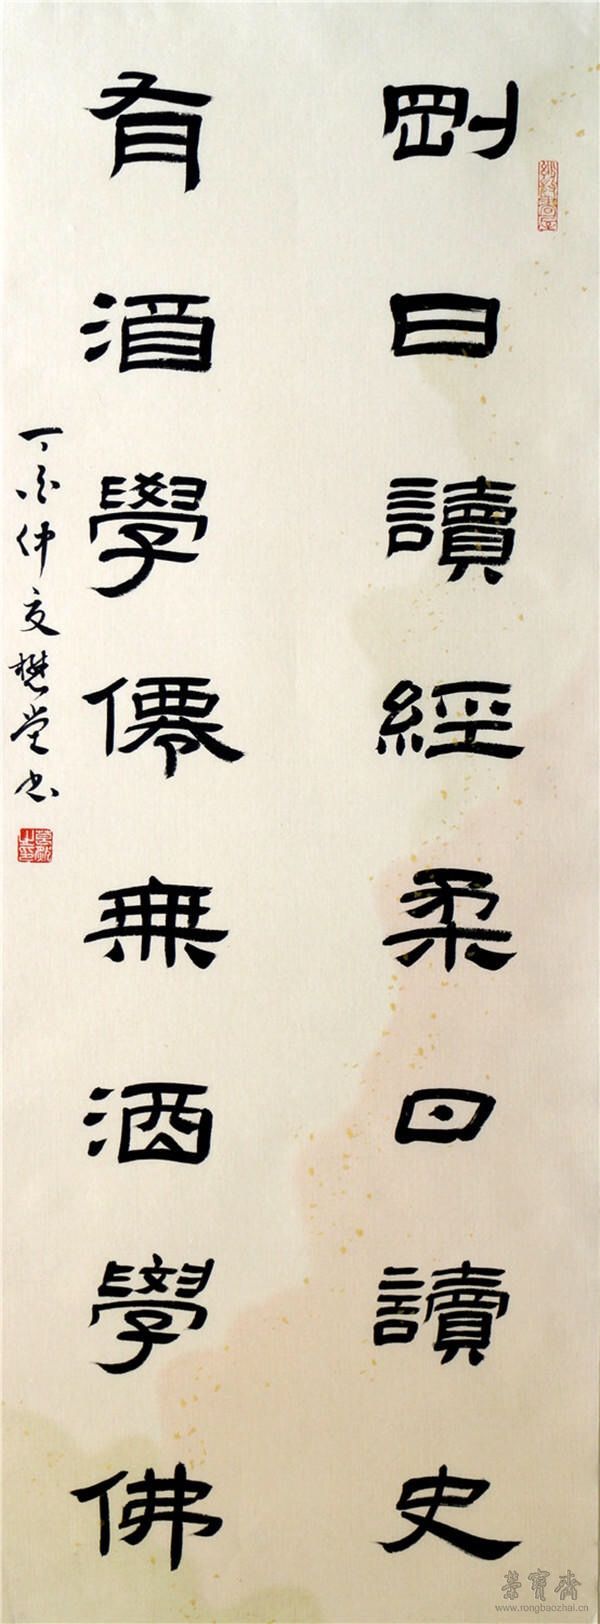 剛日讀經柔日讀史
有酒學僊無酒學佛
丁酉仲夏樊堂书
榮寶齋
www.rongbaozhai.cn